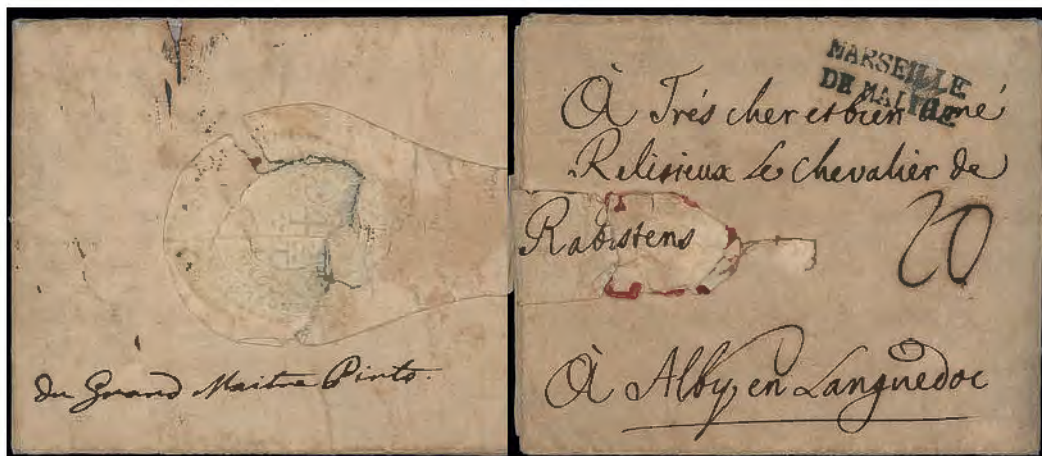 du Grand Maitre Pinto.
MARSEILLE
DE MALTHE
À Trés cher et bien amé
Relisieux Le chevalier de
Rabastens
20
À Alby en Languedoc